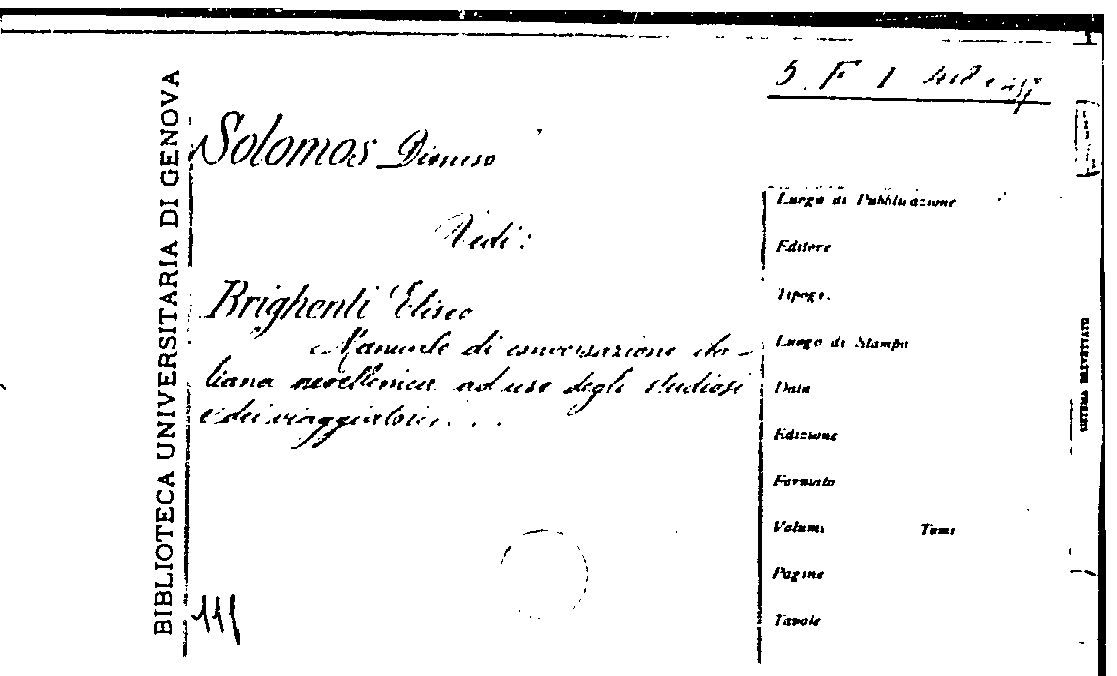 5. F 1 418
BIBLIOTECA UNIVERSITARIA DI GENOVA
Solomos Dioniso
Vedi:
Brighenti Eliseo
Manuale di conversazione ita-
liana neoellenica ad uso degli studiosi
e dei viaggiatori...
111
Luogo di Pubblicazione
Editore
Tipogr.
Luogo di Stampa
Data
Edizione
Formato
Volumi Tomi
Pagine
Tavole
SISTEMA BREVETTATO